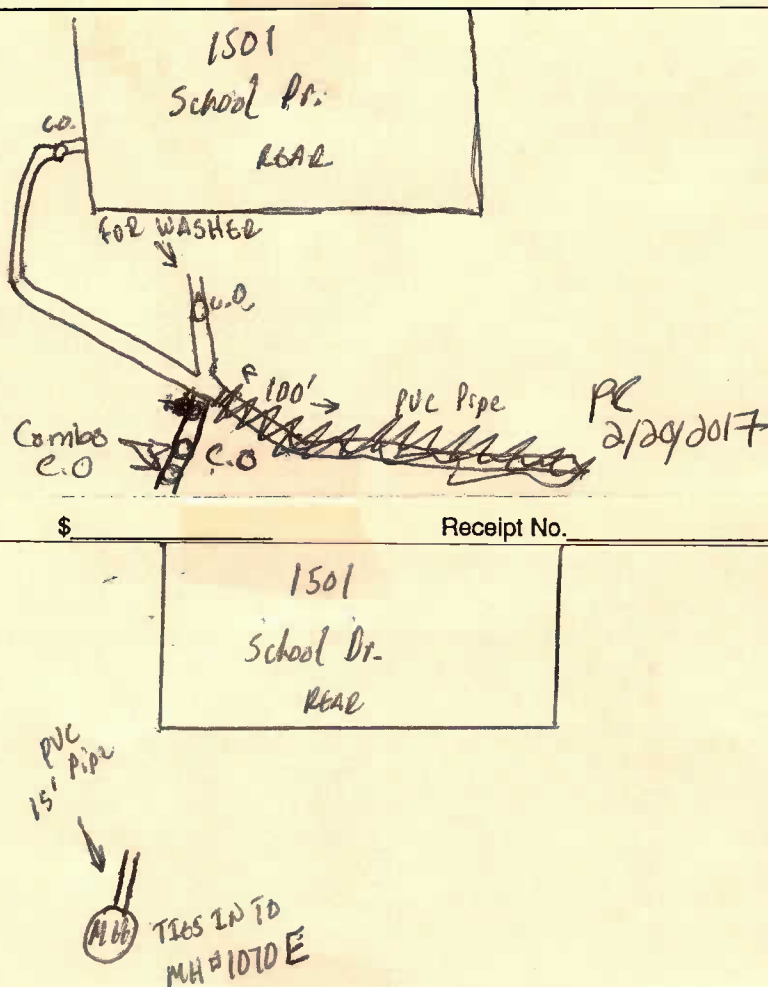 1501
School Dr.
REAR
C.O.
FOR WASHER
C.O.
100'
PVC Pipe
PC
2/20/2017
Combo
C.O
C.O
$ Receipt No.
1501
School Dr.
REAR
PVC
15' Pipe
TIES IN TO
MH#1070 E